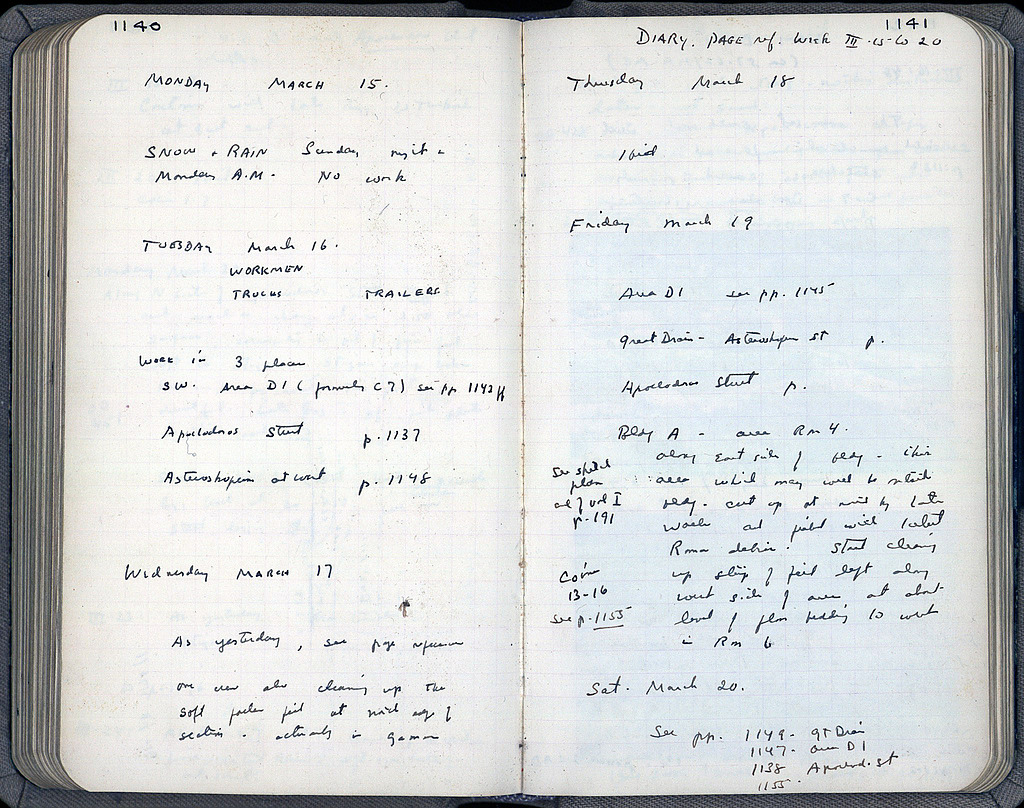 1140
MONDAY MARCH 15.
SNOW + RAIN Sunday night &
Monday A.M. - No work
TUESDAY March 16.
WORKMEN
TRUCKS TRAILERS
Work in 3 places
SW. Area D1 (formerly C7) see pp 1143 ff
Apollodoros Street p. 1137
Asteroskopeion at west p. 1148
Wednesday MARCH 17
As yesterday, see page references
one crew also cleaning up the
soft fill at mid edge of
section. actually in
1141
DIARY. PAGE ref. Week III-15 to 20
Thursday March 18
Ibid
Friday March 19
Area D1 see pp. 1145
Great Drain - Asteroskopeion St p.
Apollodoros Street p.
Bldg A - area Rm 4.
along East side of bldg - this
See sketch
plan
end of vol I
p. 191
area which may well be
bldg. cut up at mid by late
walls and filled with latest
Roman debris. Start cleaning
up strip of fill left along
west side of area at about
level of floor bedding to west
in Rm 6
Coins
13-16
see p. 1155
Sat. March 20.
See pp. 1149 - Gt Drain
1147 - area D1
1138 Apollod. St
1155